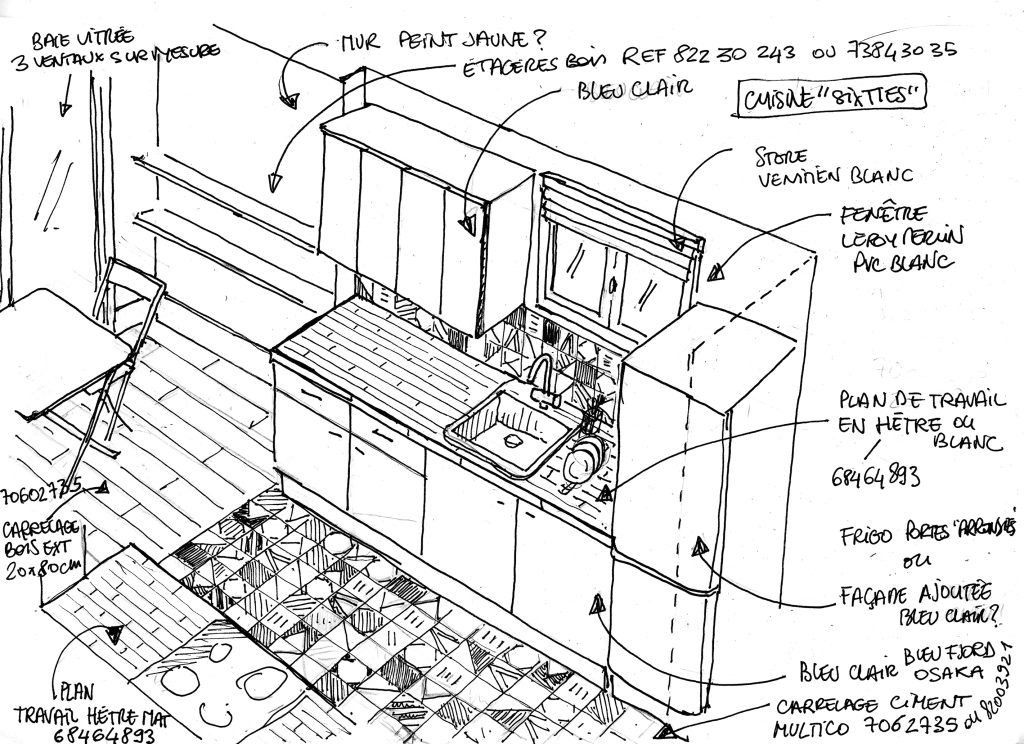 BAIE VITRÉE
3 VENTAUX SUR MESURE
MUR PEINT JAUNE?
ÉTAGÈRES BOIS REF 822 30 243 OU 73843035
BLEU CLAIR
CUISINE "SIXTIES"
STORE
VENITIEN BLANC
FENÊTRE
LEROY MERLIN
PVC BLANC
PLAN DE TRAVAIL
EN HÊTRE OU
BLANC
68464893
FRIGO PORTES "ARRONDIES"
OU
FAÇADE AJOUTÉE
BLEU CLAIR?
BLEU CLAIR BLEU FJORD
OSAKA
CARRELAGE CIMENT
MULTICO 7062735 OU 82003921
70602735
CARRELAGE
BOIS EXT
20x80cm
PLAN
TRAVAIL HÊTRE MAT
68464893